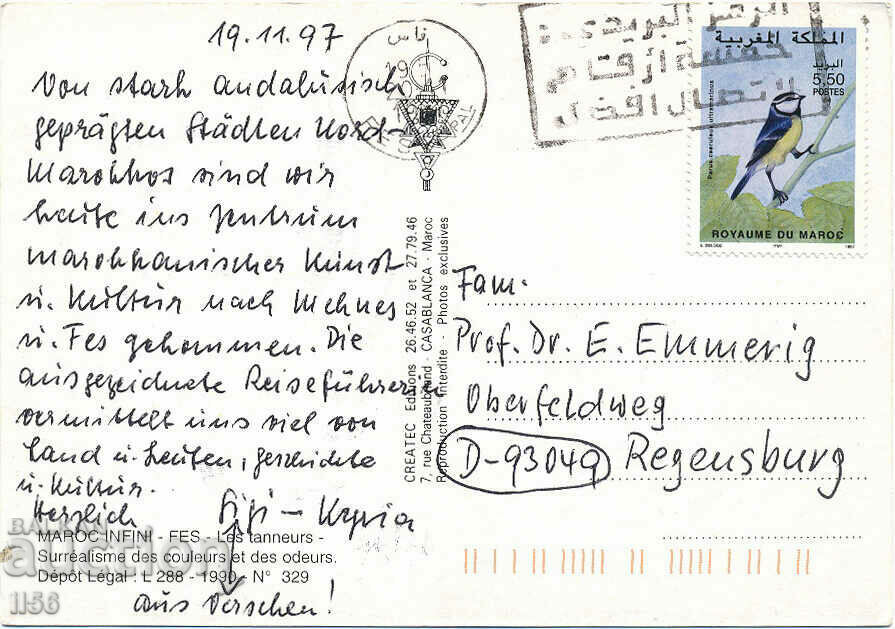 19.11.97
Von stark andalusisch
geprägten Städten Nord-
Marokkos sind wir
heute ins Zentrum
marokkanischer Kunst
u. Kultur nach Meknes
u. Fes gekommen. Die
ausgezeichnete Reiseführerin
vermittelt uns viel von
Land u. Leuten, Geschichte
u. Kultur.
Herzlich Gigi –
aus Versehen!
MAROC INFINI - FES - Les tanneurs -
Surréalisme des couleurs et des odeurs.
Dépôt Légal : L 288 - 1990 - N° 329
CREATEC Editions 26.46.52 et 27.79.46
7, rue Chateaubriand - CASABLANCA - Maroc
Reproduction Interdite - Photos exclusives
فاس
الرمز البريدي
خمسة أرقام
لاتصال افضل
المملكة المغربية
البريد
5,50
POSTES
Parus caeruleus ultramarinus
ROYAUME DU MAROC
1997
Fam.
Prof. Dr. E. Emmerig
Oberfeldweg
D-93049 Regensburg
BALKAN
auction
1156